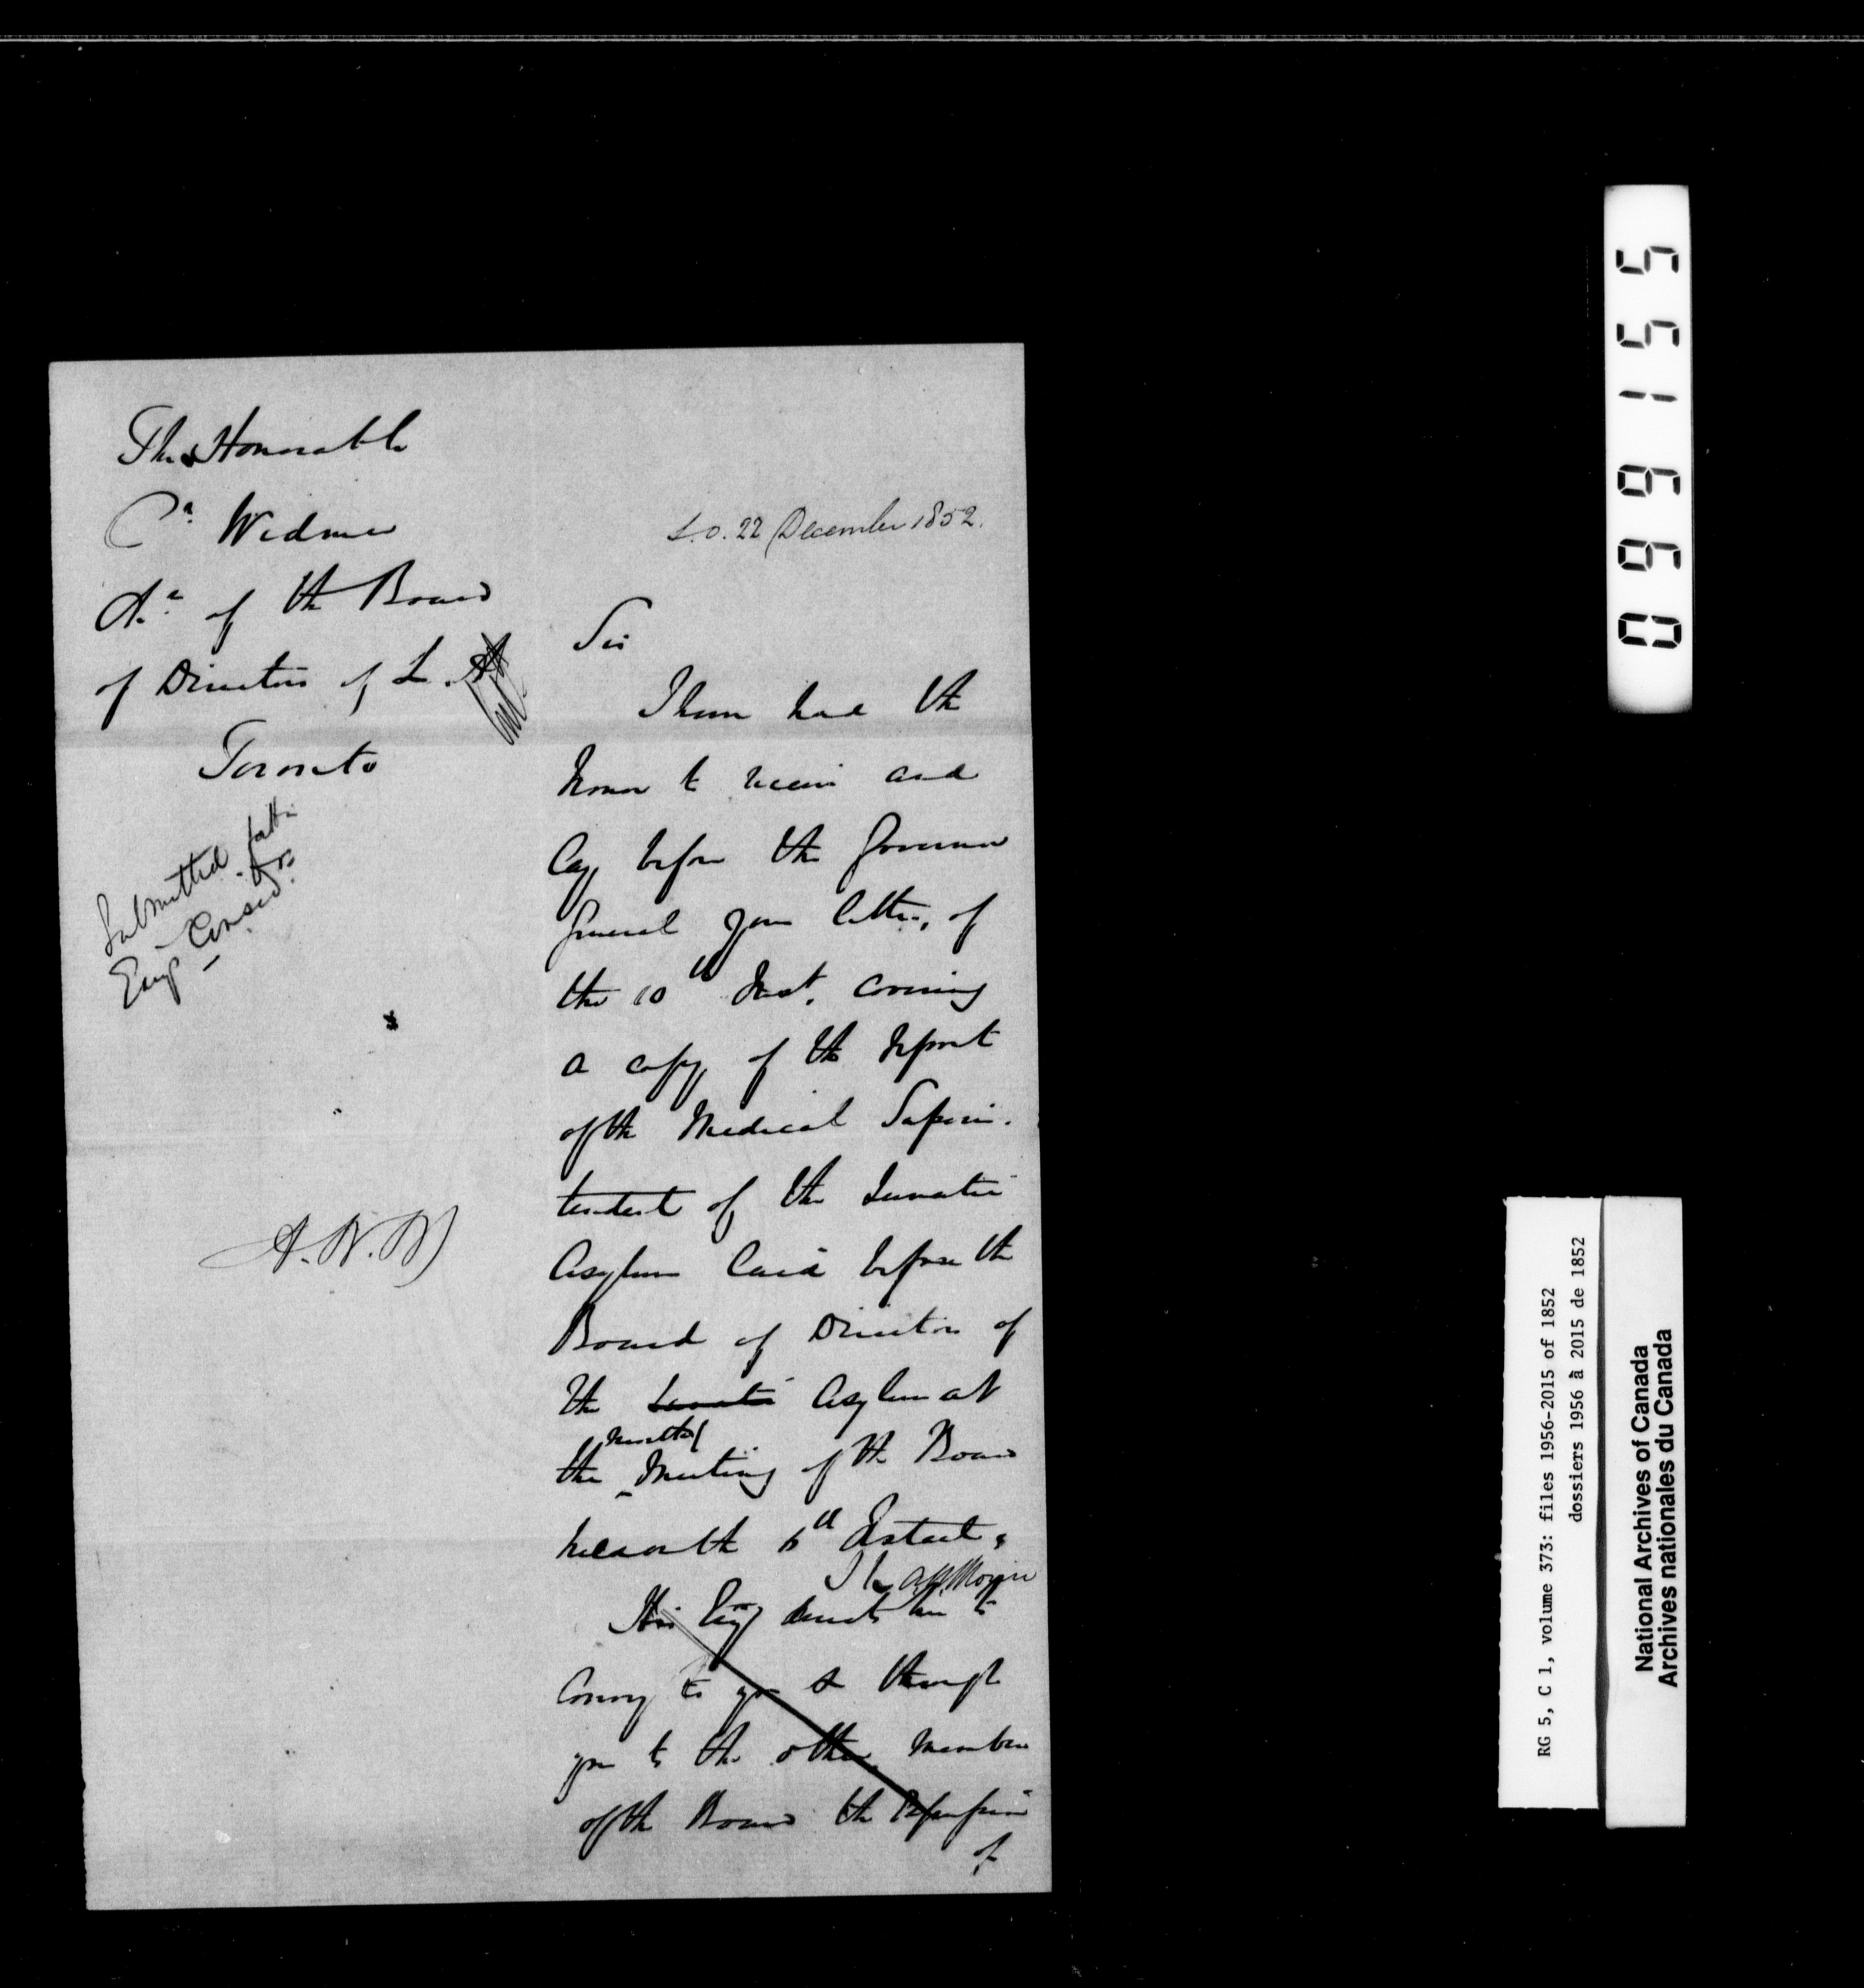 The Honorable
Cr. Widmer
of the Board
of Directors of L.
Toronto
Submitted for the
Consid.
A. N. M
S.O. 22 December 1852.
Sir
I have had the
honor to receive and
lay before the Governor
General your letter, of
the 10th Inst. covering
a copy of the report
of the Medical Superin-
tendent of the Lunatic
Asylum laid before the
Board of Directors of
the Lunatic Asylum at
monthly
the Meeting of the Board
held on the 6th Instant,
A N Morin
His Excy directs me to
convey to you & through
you to the other members
of the Board the expression
of
551660
RG 5, C 1, volume 373: files 1956-2015 of 1852
dossiers 1956 à 2015 de 1852
National Archives of Canada
Archives nationales du Canada